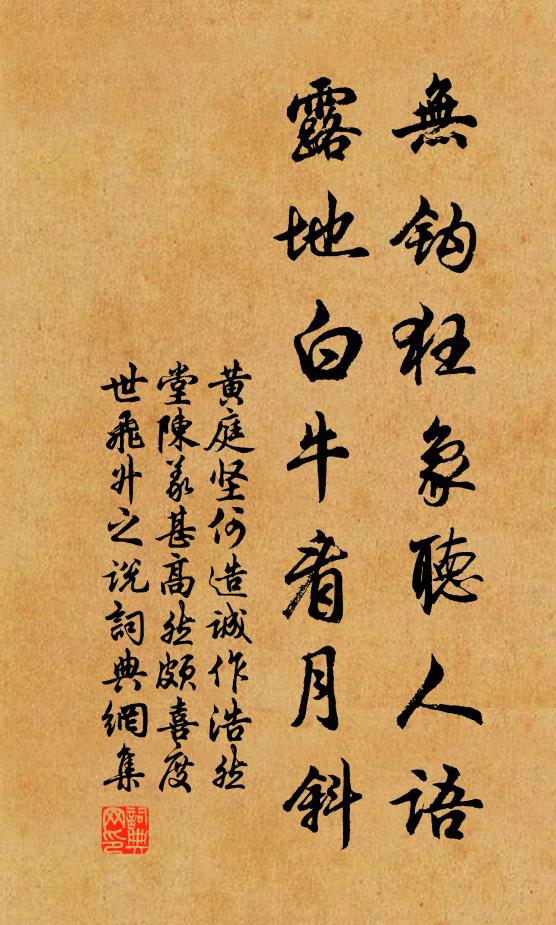 無鈎狂象聽人語
露地白牛看月斜
黄庭坚何造誠作浩然
堂陳義甚高然頗喜度
世飛升之説詞典網集
詞典网印